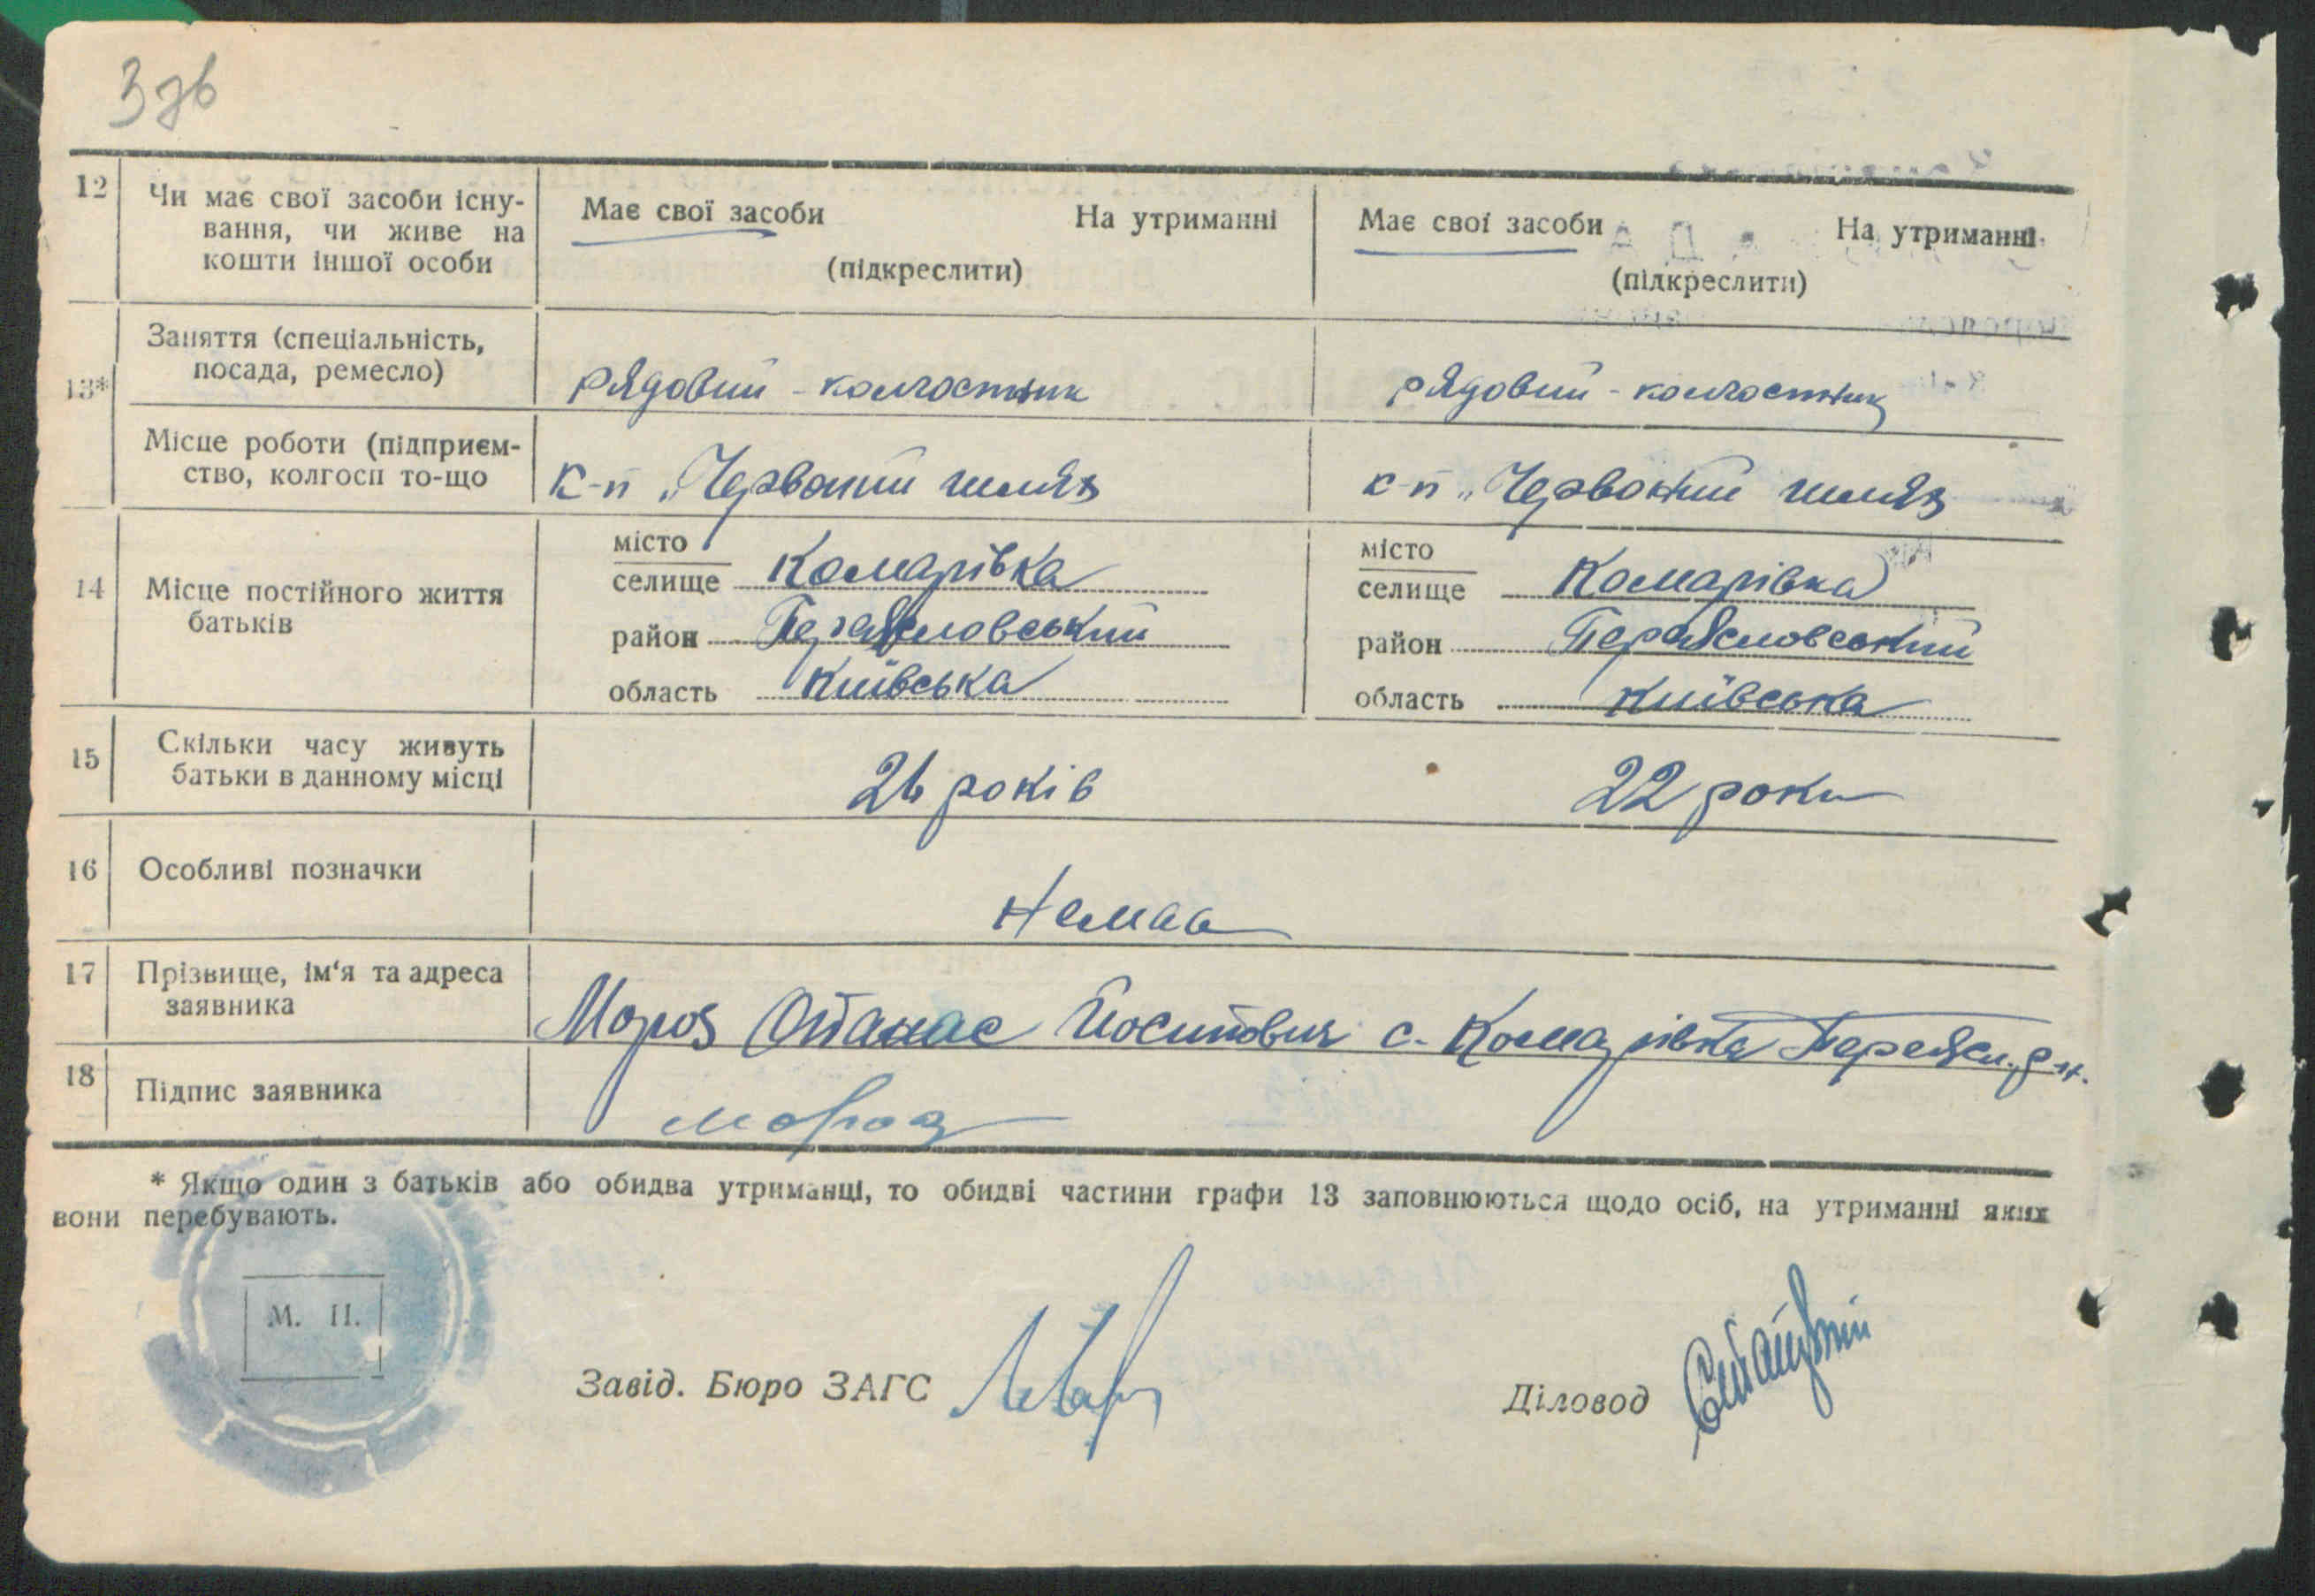 3 зв
12 Чи має свої засоби існу-
вання, чи живе на
кошти іншої особи
Має свої засоби На утриманні
(підкреслити)
Має свої засоби На утриманні
(підкреслити)
13*
Заняття (спеціальність,
посада, ремесло)
рядовий - колгостник
рядовий - колгостник
Місце роботи (підприєм-
ство, колгосп то-що
к-п „Червоний шлях
к-п „Червоний шлях
14 Місце постійного життя
батьків
місто
селище Комарівка
район Переясловський
область Київська
місто
селище Комарівка
район Переясловський
область Київська
15 Скільки часу живуть
батьки в данному місці
26 років
22 роки
16 Особливі позначки
Немає
17 Прізвище, ім‘я та адреса
заявника
Мороз Опанас Йосипович с. Комарівка Переясл. р-н.
18 Підпис заявника
Мороз
* Якщо один з батьків або обидва утриманці, то обидві частини графи 13 заповнюються щодо осіб, на утриманні яких
вони перебувають.
М. П.
Завід. Бюро ЗАГС
Діловод